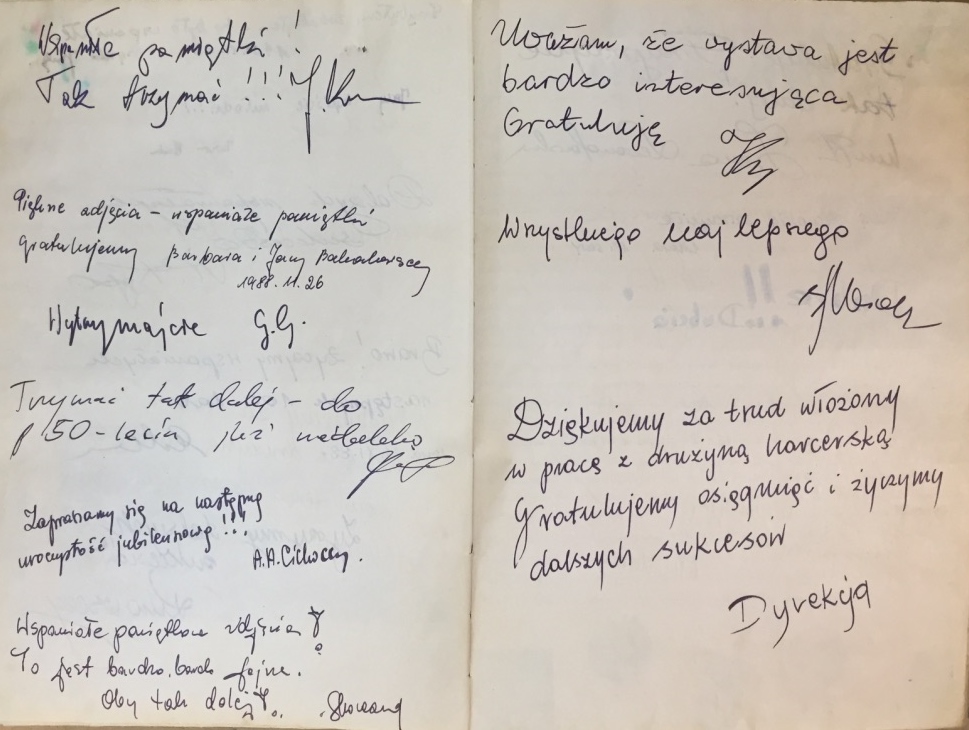 Wspaniałe pamiątki!
Tak trzymać!!!
Piękne zdjęcia – wspaniałe pamiątki
gratulujemy Barbara i Jany
1988.11.26
Wytrzymajcie G.G.
Trzymać tak dalej – do
50-lecia już niedaleko
Zapraszamy się na następną
uroczystość jubileuszową!!!
A.A. Cichoccy.
Wspaniałe pamiątkowe zdjęcia!
To jest bardzo, bardo fajne.
Oby tak dalej!
Uważam, że wystawa jest
bardzo interesująca
Gratuluję
Wszystkiego najlepszego
Dziękujemy za trud włożony
w pracę z drużyną harcerską
Gratulujemy osiągnięć i życzymy
dalszych sukcesów
Dyrekcja